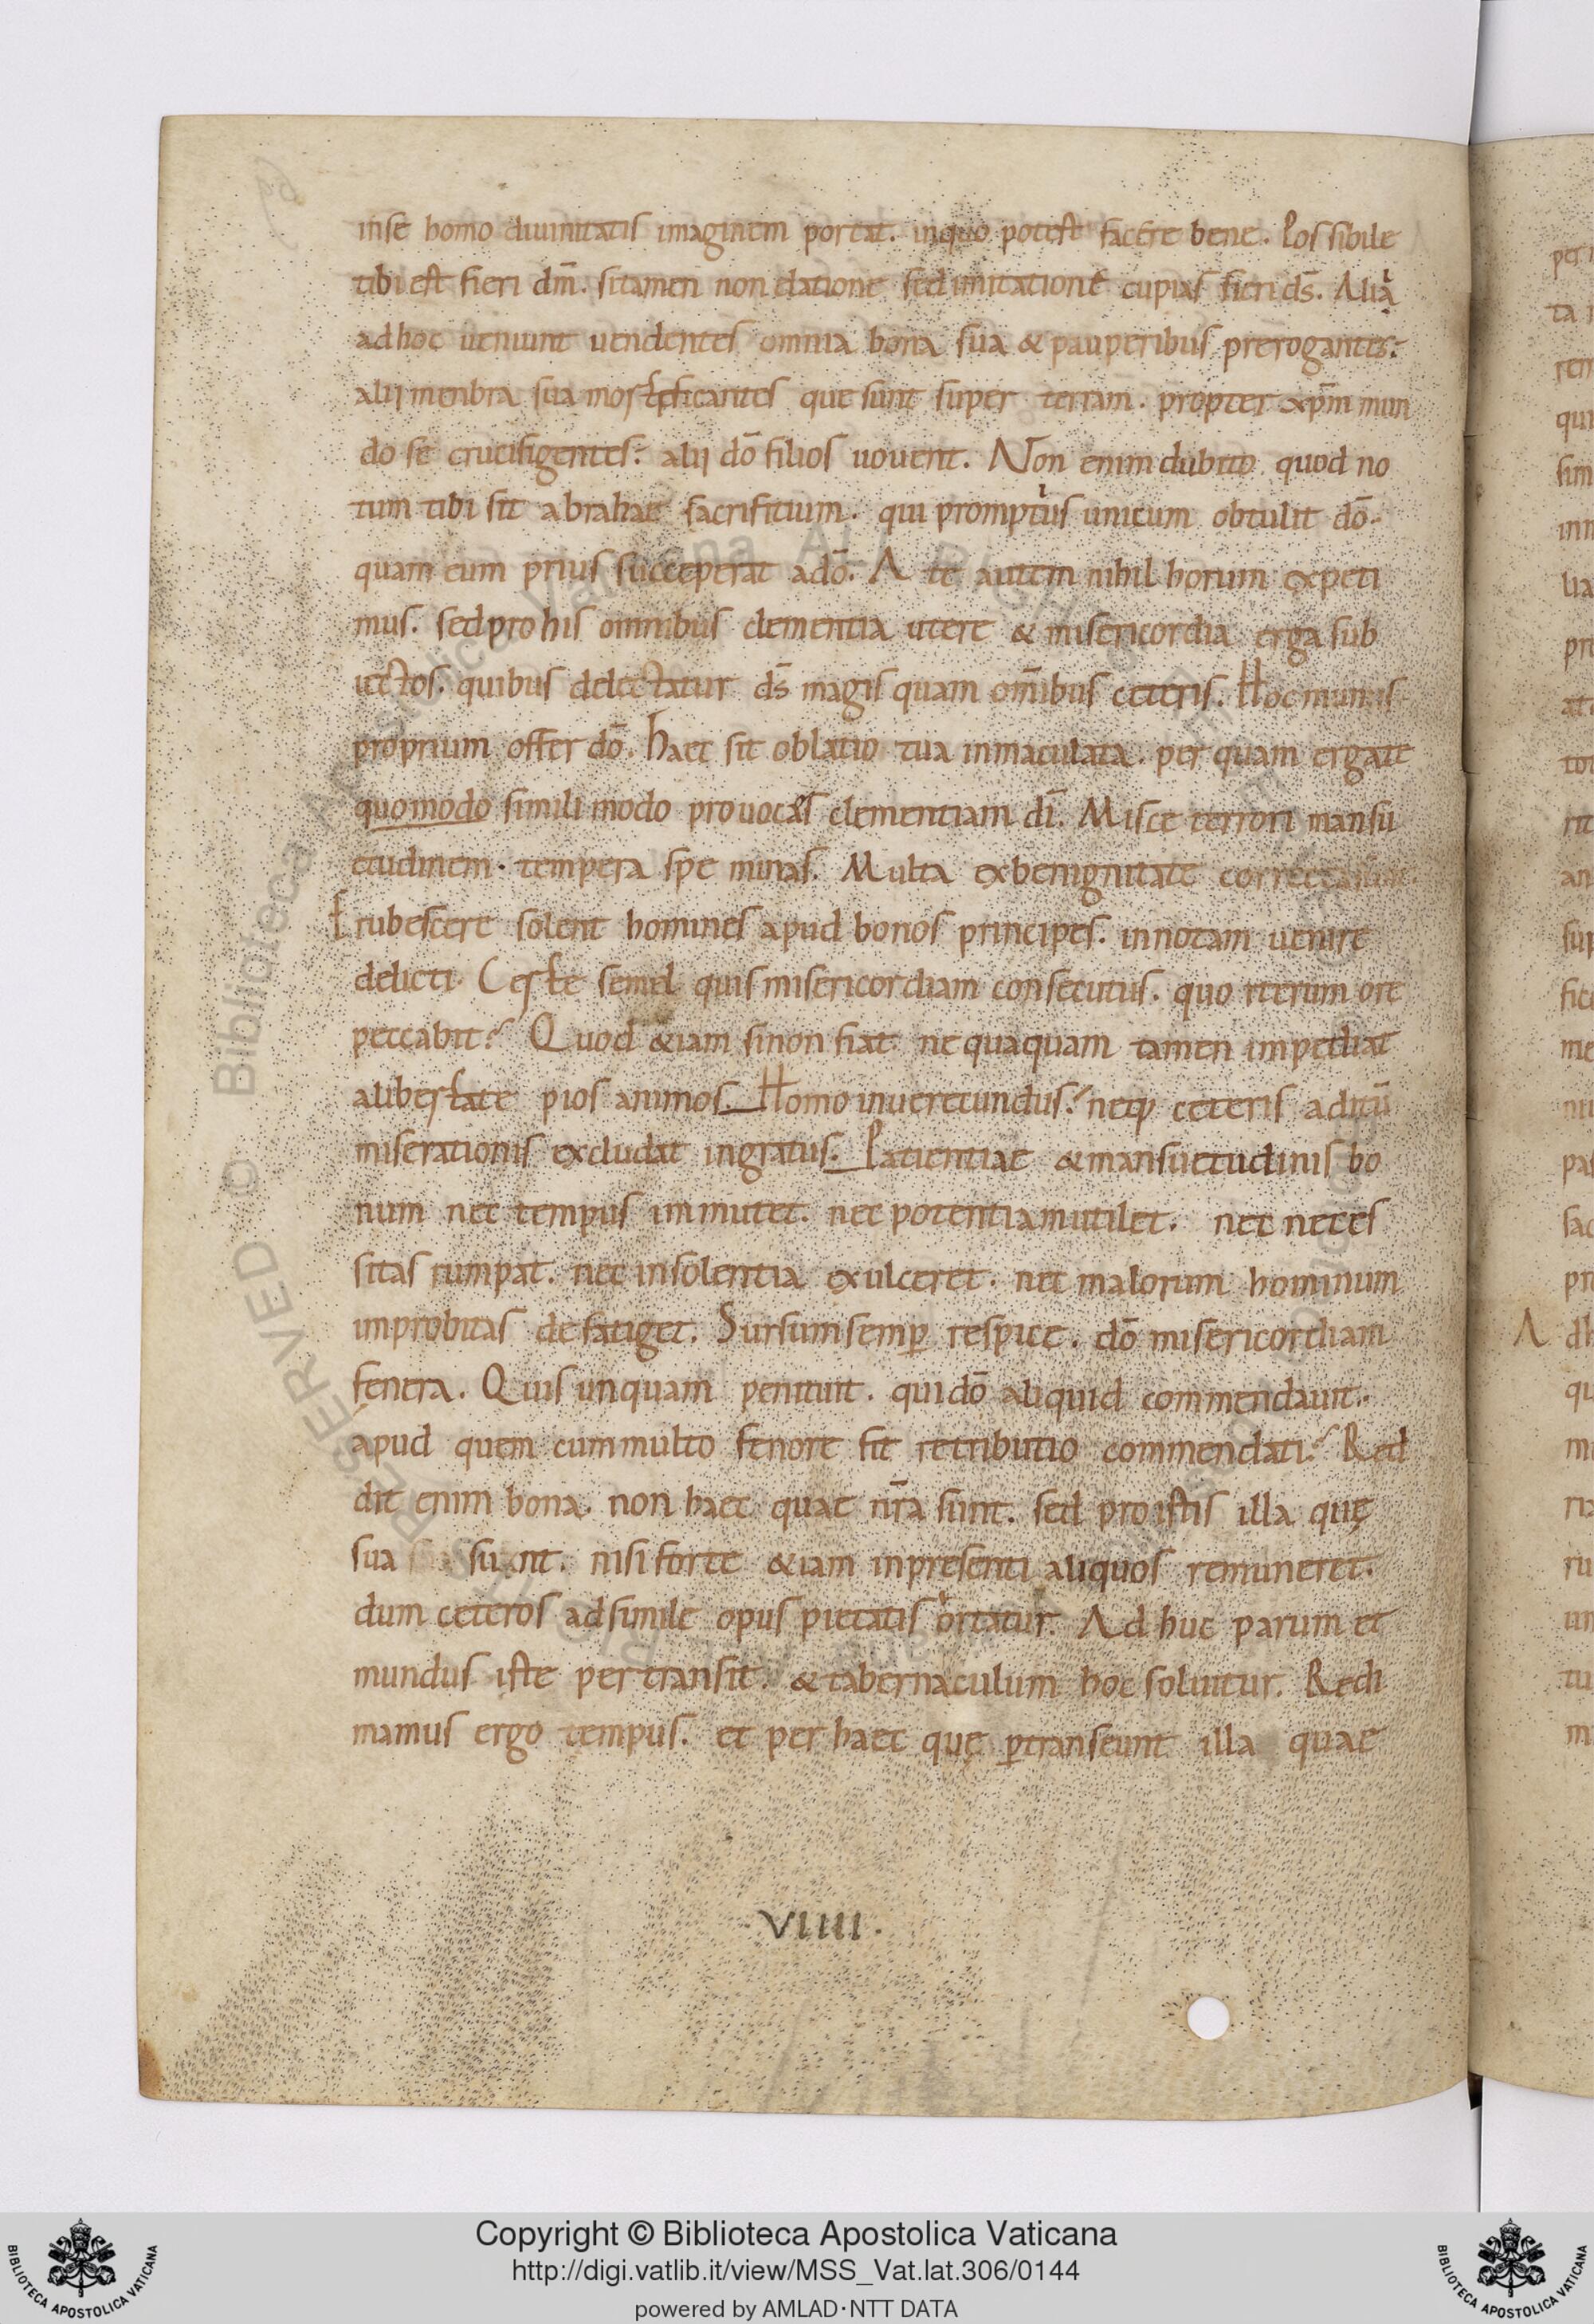 inse homo diuinitatis imaginem portat. inquo potest facere bene. Possibile
tibi est fieri dm̄. sitamen non elatione sed imitatione cupias fieri ds̄. Alii
adhoc ueniunt uendentes omnia bona sua & pauperibus prerogantes:
alii menbra sua mortificantes que sunt super terram. propter xp̄m mun
do se crucifigentes: alii dō filios uouent. Non enim dubito quod no
tum tibi sit abrahae sacrifitium. qui promptius unicum obtulit dō.
quam eum prius succeperat adō. A te autem nihil horum expeti
mus. sedprohis omnibus clementia utere & misericordia erga sub
iectos. quibus delectatur ds̄ magis quam om̄ibus ceteris. Hoc munus
proprium offer dō. haec sit oblatio tua inmaculata. per quam ergate
quomodo simili modo prouoces clementiam dī. Misce terrori mansu
etudinem. tempera spe minas. Multa exbenignitate
Erubescere solent homines apud bonos principes. innotam uenire
delicti. Certe semel quis misericordiam consecutus. quo iterum ore
peccabit? Quod &iam sinon fiat nequaquam tamen impediat
alibertate pios animos. Homo inuerecundus? neq; ceteris aditū
miserationis excludat ingratus. Patientiae &mansuetudinis bo
num nec tempus immutet. nec potentiamutilet. nec neces
sitas rumpat. nec insolentia exulceret. nec malorum hominum
improbitas defatiget. Sursumsemp̄ respice. dō misericordiam
fenera. Quis unquam penituit. quidō aliquid commendauit.
apud quem cummulto fenore fit retributio commendati? Red
dit enim bona. non haec quae nr̄a sunt. sed proistis illa quę
sua sunt. nisi forte &iam inpresenti aliquos remuneret.
dum ceteros adsimile opus pietatis ortatur. Ad huc parum et
mundus iste pertransit. & tabernaculum hoc soluitur. Redi
mamus ergo tempus. et per haec quę ꝑtranseunt illa quae
VIIII.
Copyright © Biblioteca Apostolica Vaticana
http://digi.vatlib.it/view/MSS_Vat.lat.306/0144
powered by AMLAD·NTT DATA